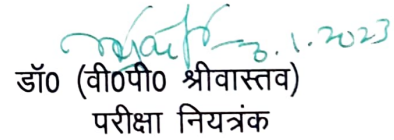 3.1.2023
डॉ0 (वी0पी0 श्रीवास्तव)
परीक्षा नियत्रंक